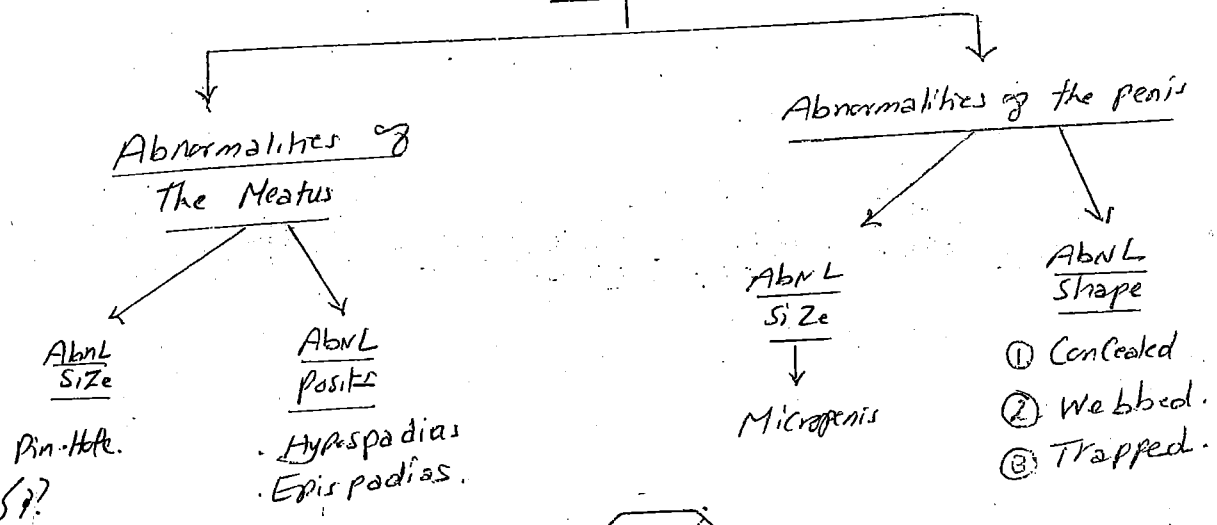 Abnormalities of
The Meatus
AbnL
Size
Pin-Hole.
AbNL
Hypospadias
. Epispadias.
Abnormalities of the penis
AbNL
SiZe
Micropenis
AbNL
Shape
① Concealed
② Webbed.
③ Trapped.